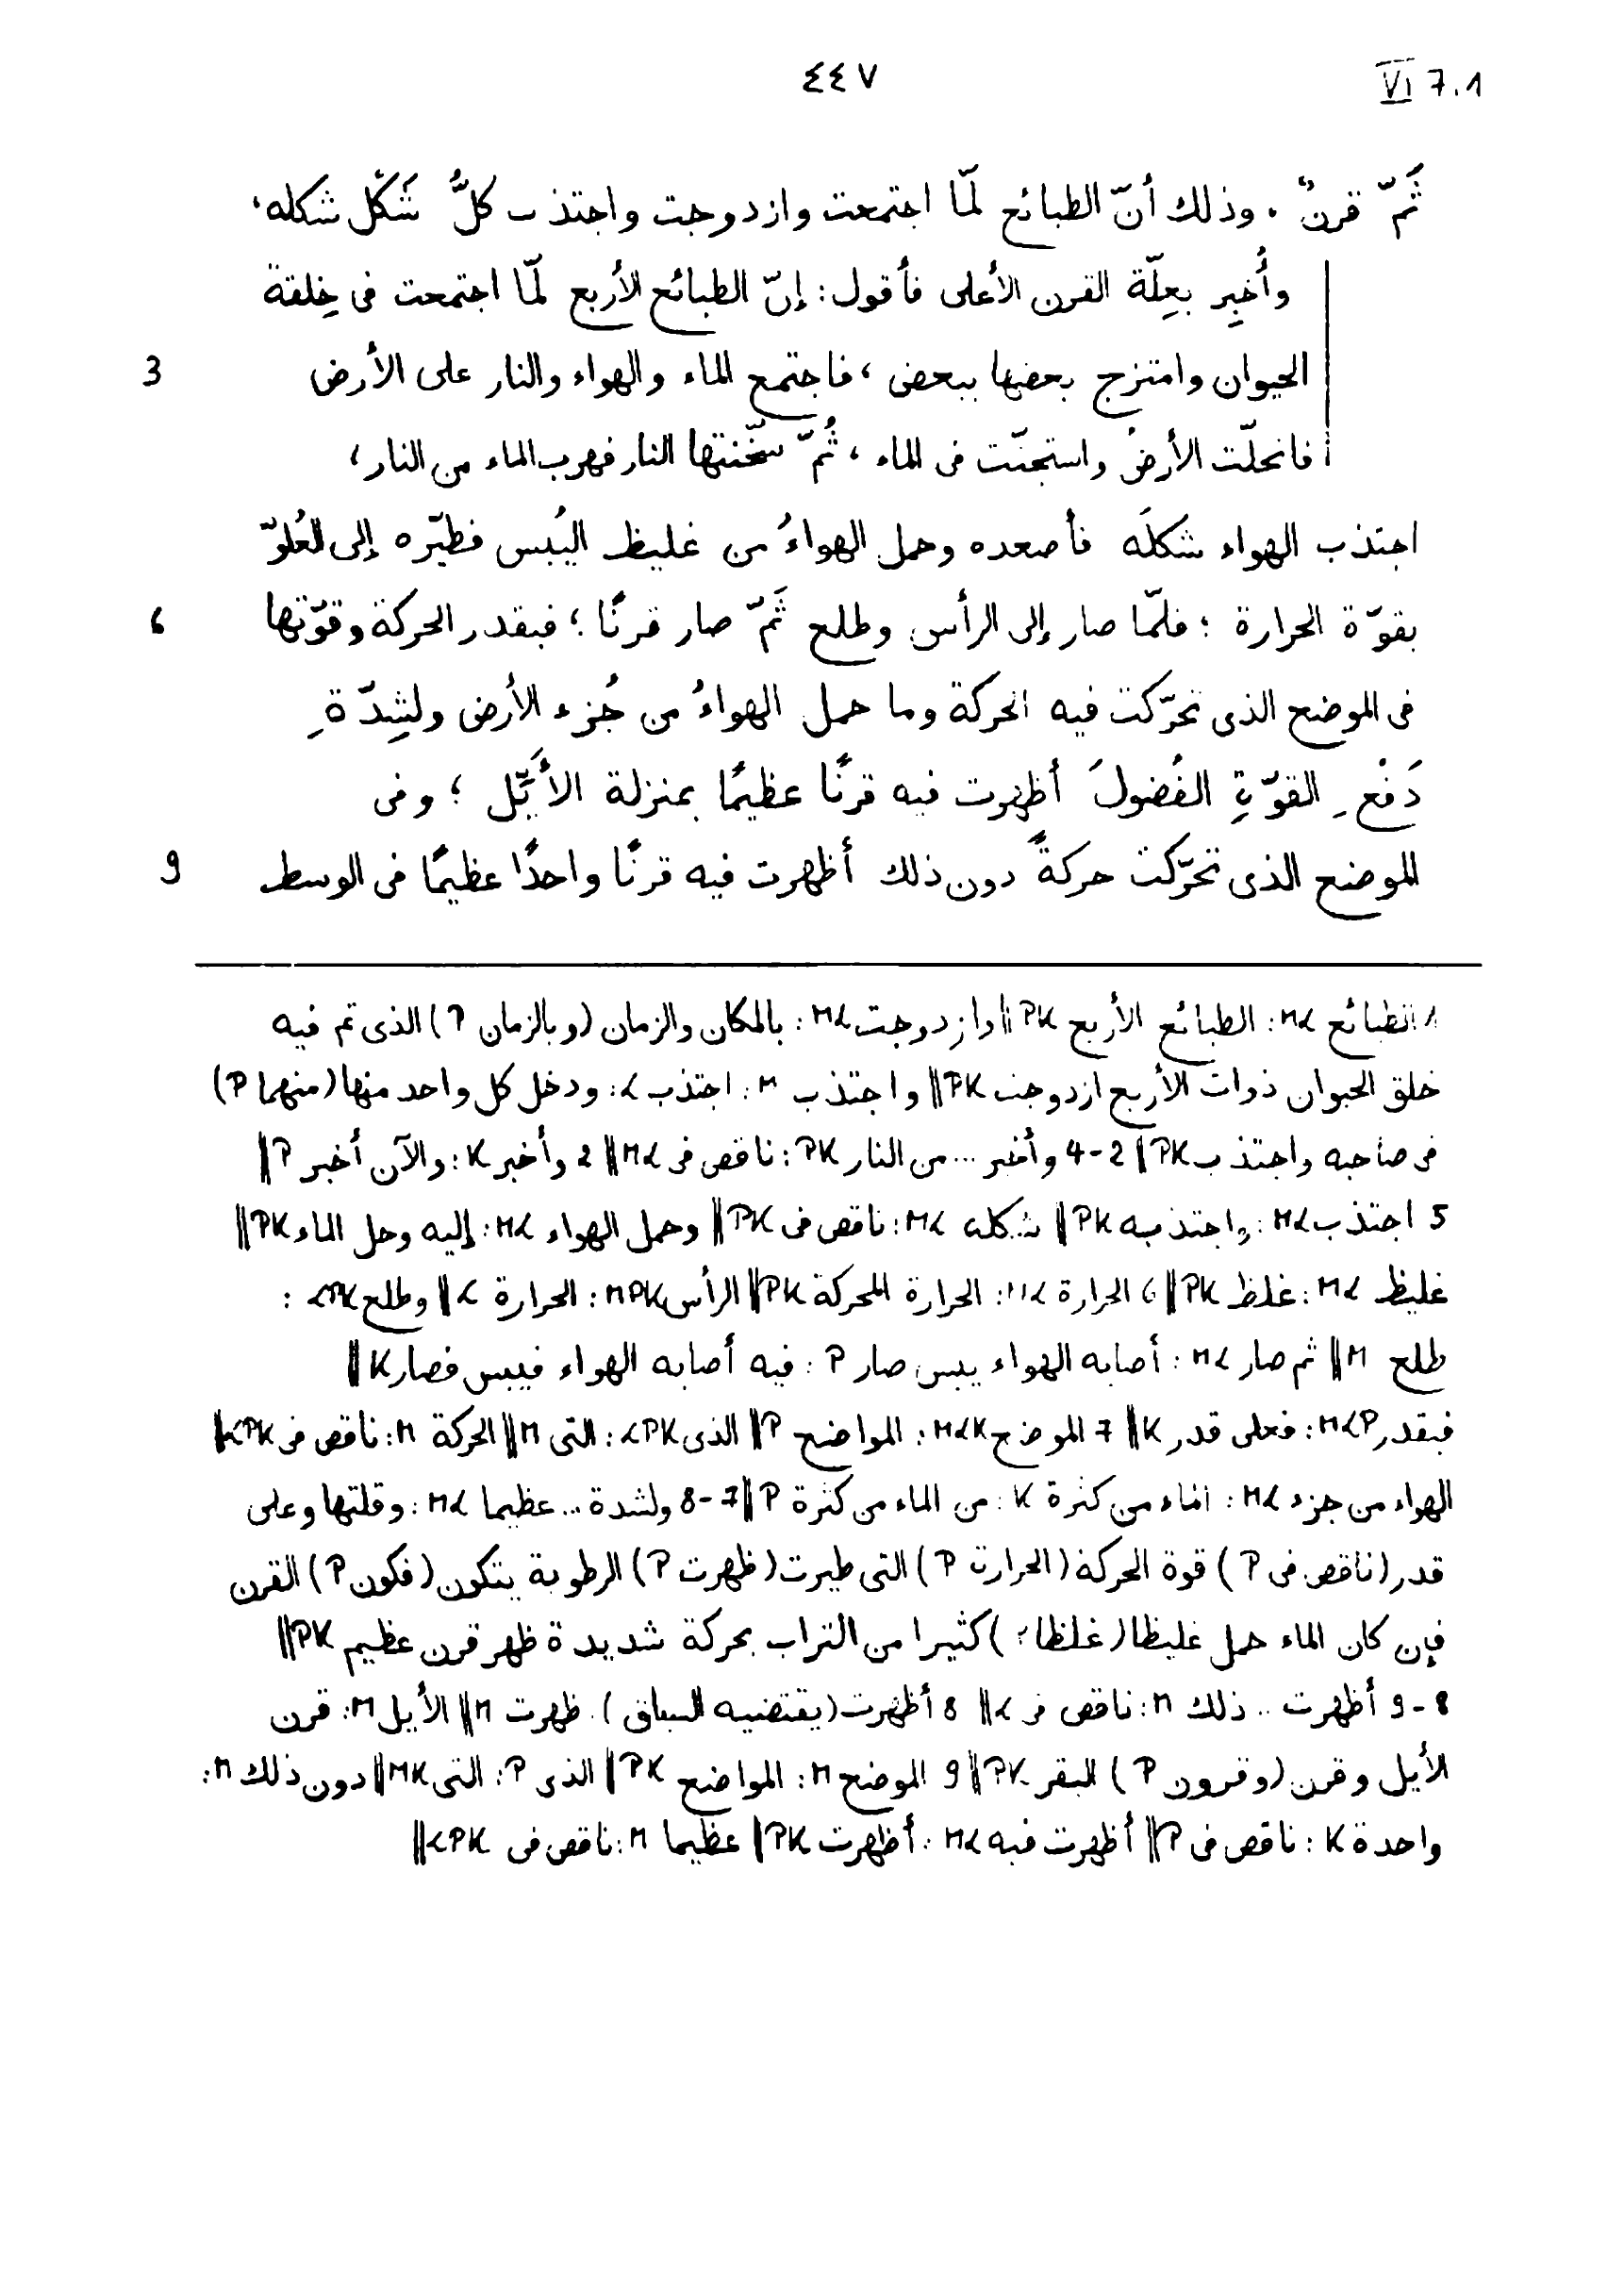 ٤٤٧
VI 7.1
ثَمّ قرنٌ. وذلك أنّ الطبائع لمّا اجتمعت وازدوجت واجتذب كلُّ شَكْل شكله،
وأُخبِر بعِلّة القرن الأعلى فأقول: إنّ الطبائع الأربع لمّا اجتمعت فى خِلقة
الحيوان وامتزج بعضها ببعض، فاجتمع الماء والهواء والنار على الأرض 3
فانحلّت الأرضُ واستجنّت فى الماء، ثُمّ سخّنتها النار فهرب الماء من النار،
اجتذب الهواء شكلَه فأصعده وحمل الهواءُ من غليظ اليُبس فطيّره إلى العُلوّ
بقوّة الحرارة؛ فلمّا صار إلى الرأس وطلع ثَمّ صار قرنًا؛ فبقدر الحركة وقوّتها 6
فى الموضع الذى تحرّكت فيه الحركة وما حمل الهواءُ من جُزء الأرض ولشِدّةِ
دَفْعِ القوّةِ الفُضولَ أظهرت فيه قرنًا عظيمًا بمنزلة الأَيِّل؛ وفى
الموضع الذى تحرّكت حركةً دون ذلك أظهرت فيه قرنًا واحدًا عظيمًا فى الوسط 9
1 الطبائع ML: الطبائع الأربع PK || وازدوجت ML: بالمكان والزمان (وبالزمان P) الذى تم فيه
خلق الحيوان ذوات الأربع ازدوجت PK || واجتذب M: اجتذب L: ودخل كل واحد منها (منهما P)
فى صاحبه واجتذب PK || 2-4 وأخبر ... من النار PK: ناقص فى ML || 2 وأخبر K: والآن أخبر P ||
5 اجتذب ML: واجتذبه PK || شكله ML: ناقص فى PK || وحمل الهواء ML: إليه وحل الماء PK ||
غليظ ML: غلظ PK || 6 الحرارة ML: الحرارة المحركة PK || الرأس MPK: الحرارة L || وطلع LPK:
طلع M || ثم صار ML: أصابه الهواء يبس صار P: فيه أصابه الهواء فيبس فصار K ||
فبقدر MLP: فعلى قدر K || 7 الموضع MLK: المواضع P || الذى LPK: التى M || الحركة M: ناقص فى LPK ||
الهواء من جزء ML: الماء من كثرة K: من الماء من كثرة P || 7-8 ولشدة ... عظيما ML: وقلتها وعلى
قدر (ناقص فى P) قوة الحركة (الحرارة P) التى طيرت (ظهرت P) الرطوبة يتكون (فكون P) القرن
فإن كان الماء حمل غليظا (غلظا P) كثيرا من التراب بحركة شديدة ظهر قرن عظيم PK ||
8-9 أظهرت .. ذلك M: ناقص فى L || 8 أظهرت (يقتضيه السياق). ظهرت M || الأيل M: قرن
الأيل وقرن (وقرون P) البقر PK || 9 الموضع M: المواضع PK || الذى P: التى MK || دون ذلك M:
واحدة K: ناقص فى P || أظهرت فيه ML: أظهرت PK || عظيما M: ناقص فى LPK ||